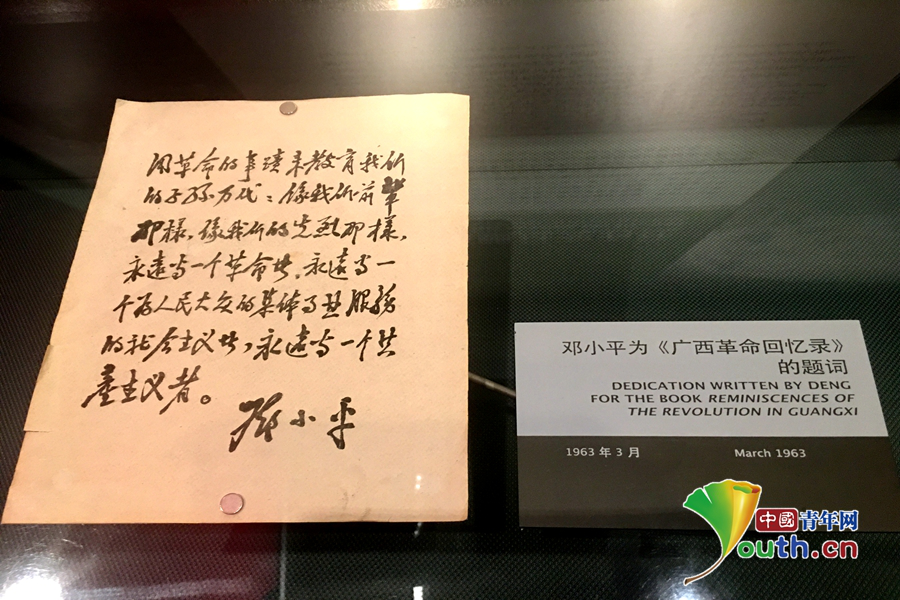 用革命的事蹟来教育我们
的子孙万代：像我们前輩
那樣，像我们的先烈那樣，
永遠当一个革命者，永遠当一
个为人民大众的集体事业服務
的社会主义者，永遠当一个共
產主义者。
邓小平
邓小平为《广西革命回忆录》
的题词
DEDICATION WRITTEN BY DENG
FOR THE BOOK REMINISCENCES OF
THE REVOLUTION IN GUANGXI
1963 年 3 月 March 1963
中國青年网
Youth.cn